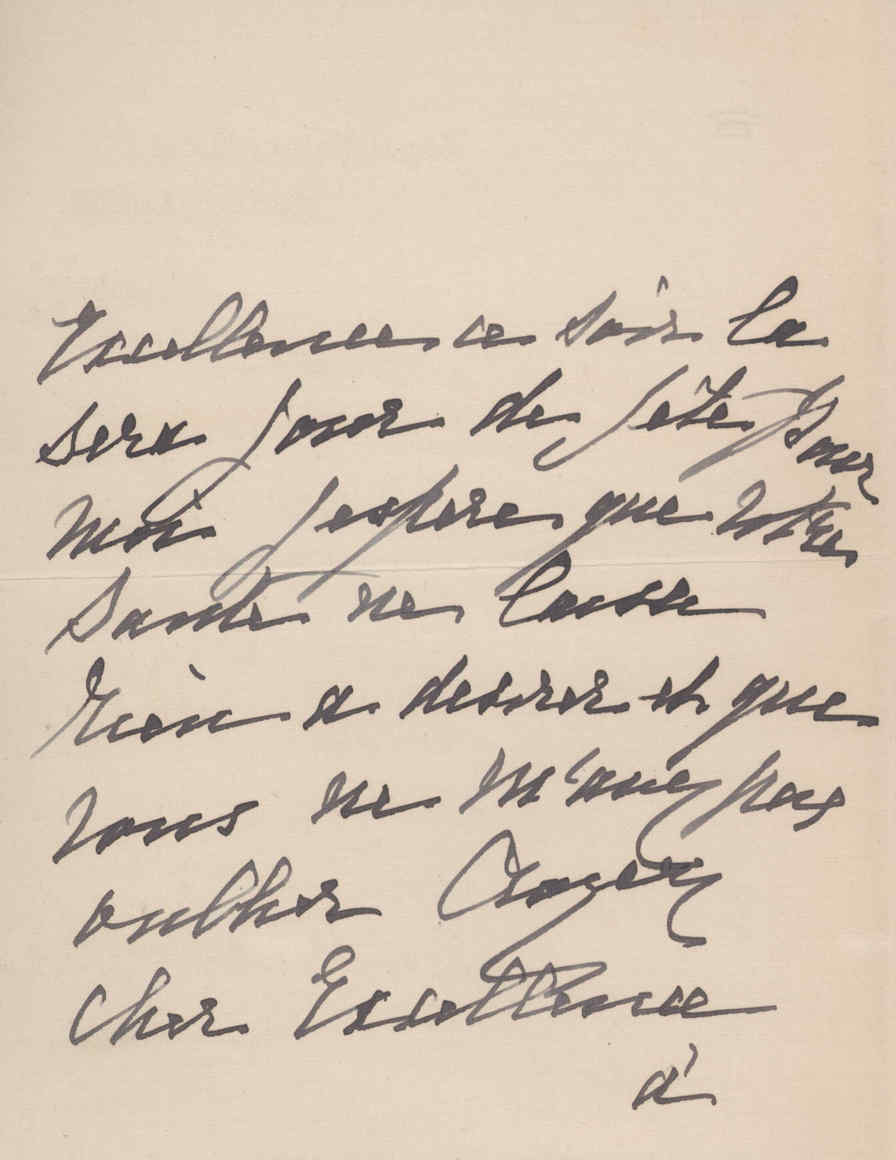 Excellence ce soir la
sera jour de fête pour
moi j espere que votre
Santé ne laisse
rien a desirer et que
vous ne m'avez pas
oublier Croyez
Cher Excellence
à